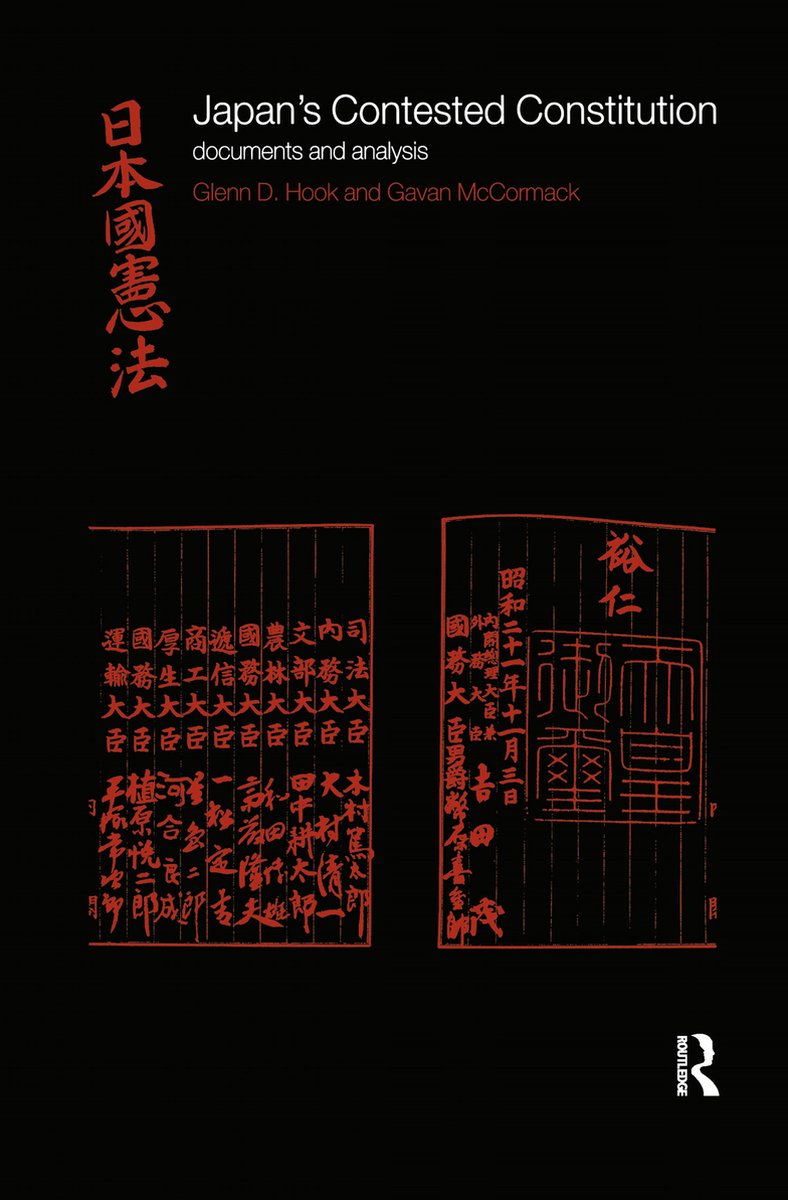 Japan's Contested Constitution
documents and analysis
Glenn D. Hook and Gavan McCormack
日本國憲法
裕仁
天皇
御璽
昭和二十一年十一月三日
内閣總理大臣兼
外務大臣
吉田茂
國務大臣 男爵幣原喜重郎
司法大臣 木村篤太郎
内務大臣 大村清一
文部大臣 田中耕太郎
農林大臣 和田博雄
國務大臣 斎藤隆夫
遞信大臣 一松定吉
商工大臣 星島二郎
厚生大臣 河合良成
國務大臣 植原悦二郎
運輸大臣 平塚常次郎
ROUTLEDGE